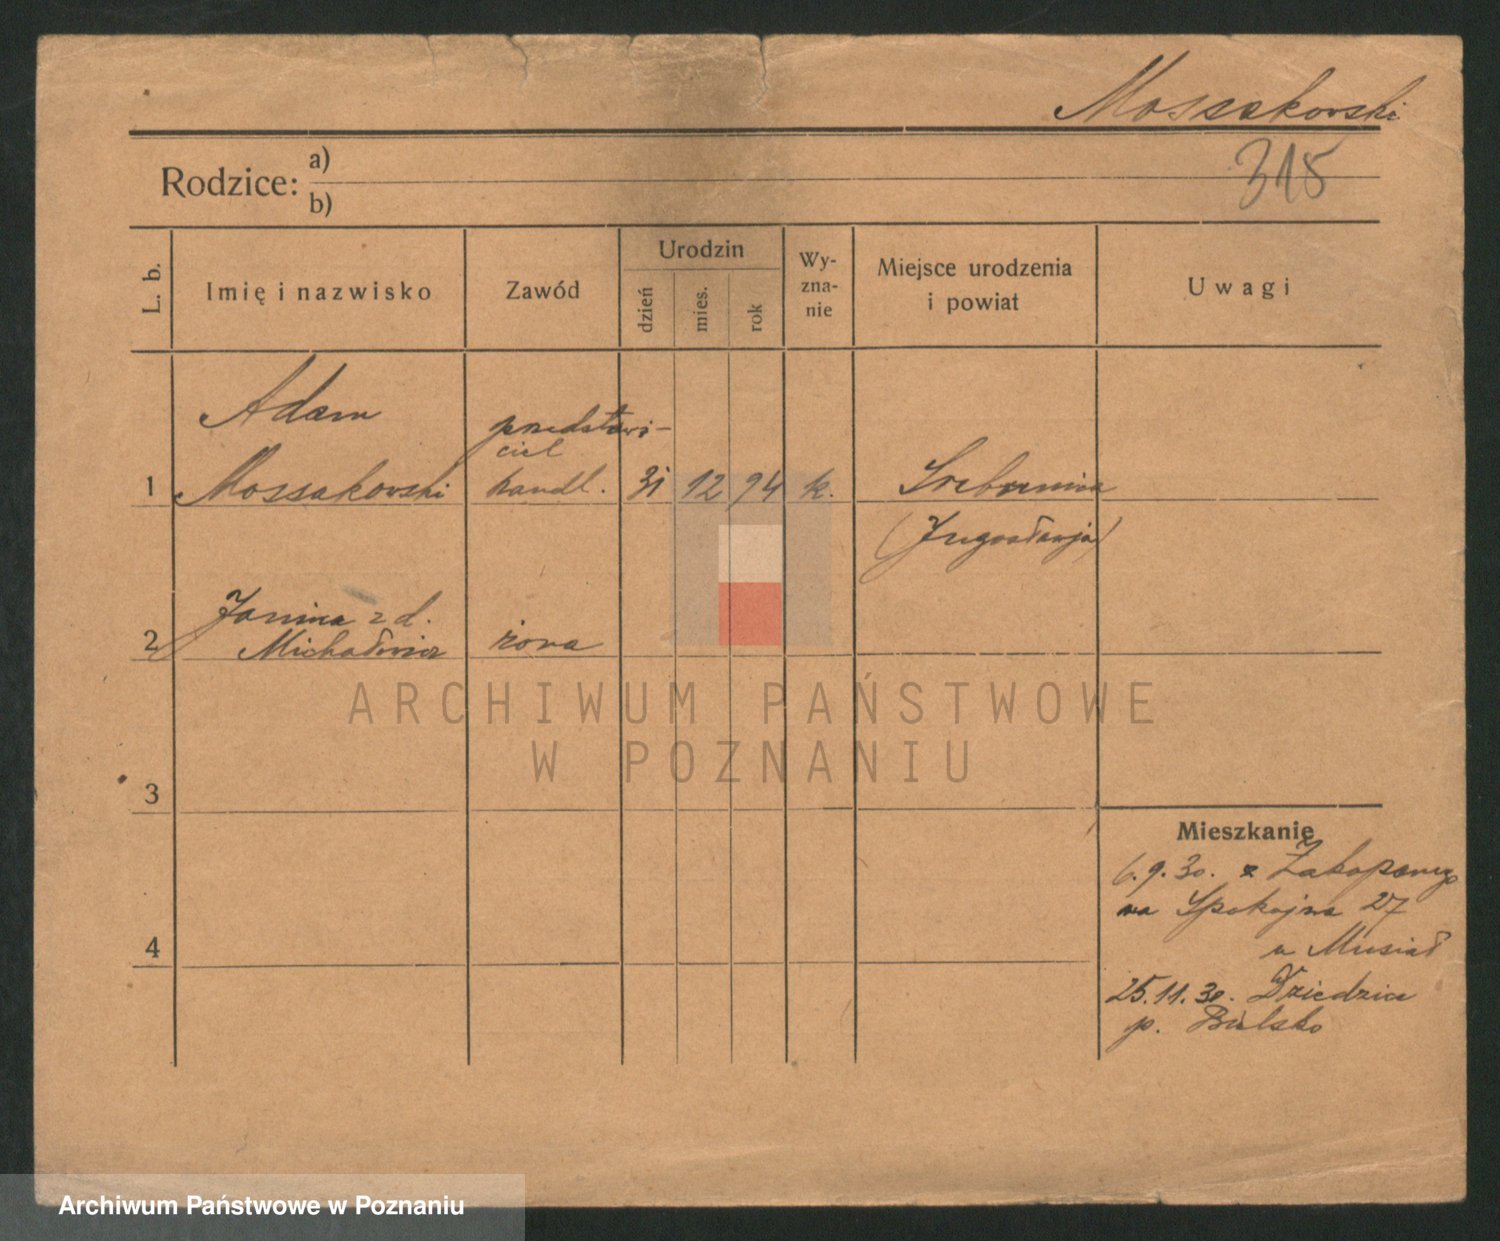 Mossakowski
315
Rodzice: a)
b)
L. b.
Imię i nazwisko
Zawód
Urodzin
dzień
mies.
rok
Wy-
zna-
nie
Miejsce urodzenia
i powiat
Uwagi
Adam
Mossakowski
przedstawi-
ciel
handl.
1
31 12 94 k.
(Jugosławja)
Janina z d.
2
Michałowicz
żona
3
4
Mieszkanie
6.9.30. z Zakopanego
na Spokojna 27
u Musiał
25.11.30. Dziedzice
p. Bielsko
ARCHIWUM PAŃSTWOWE
W POZNANIU
Archiwum Państwowe w Poznaniu